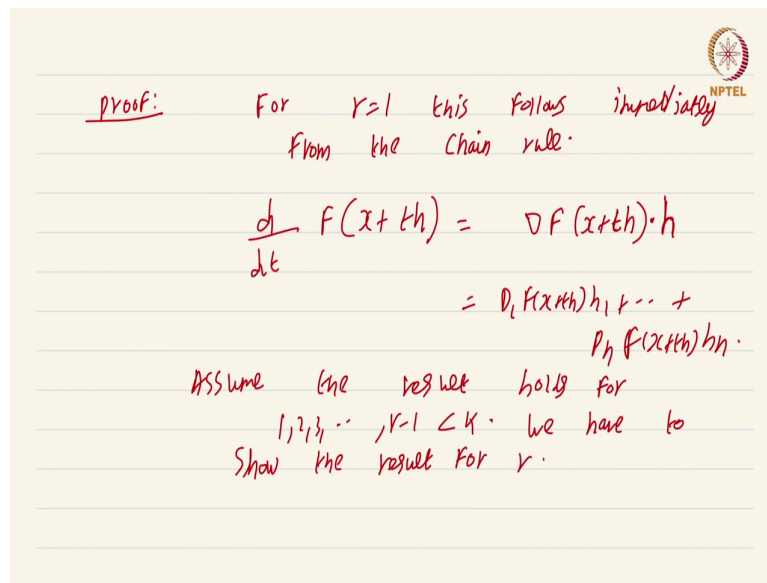 NPTEL
Proof: For r=1 this follows immediately
from the chain rule.
d/dt F(x+th) = ∇F(x+th)·h
= D₁F(x+th)h₁ + ·· +
Dₙ F(x+th)hₙ.
Assume the result holds for
1,2,3, ·· ,r-1 < k. We have to
Show the result for r.